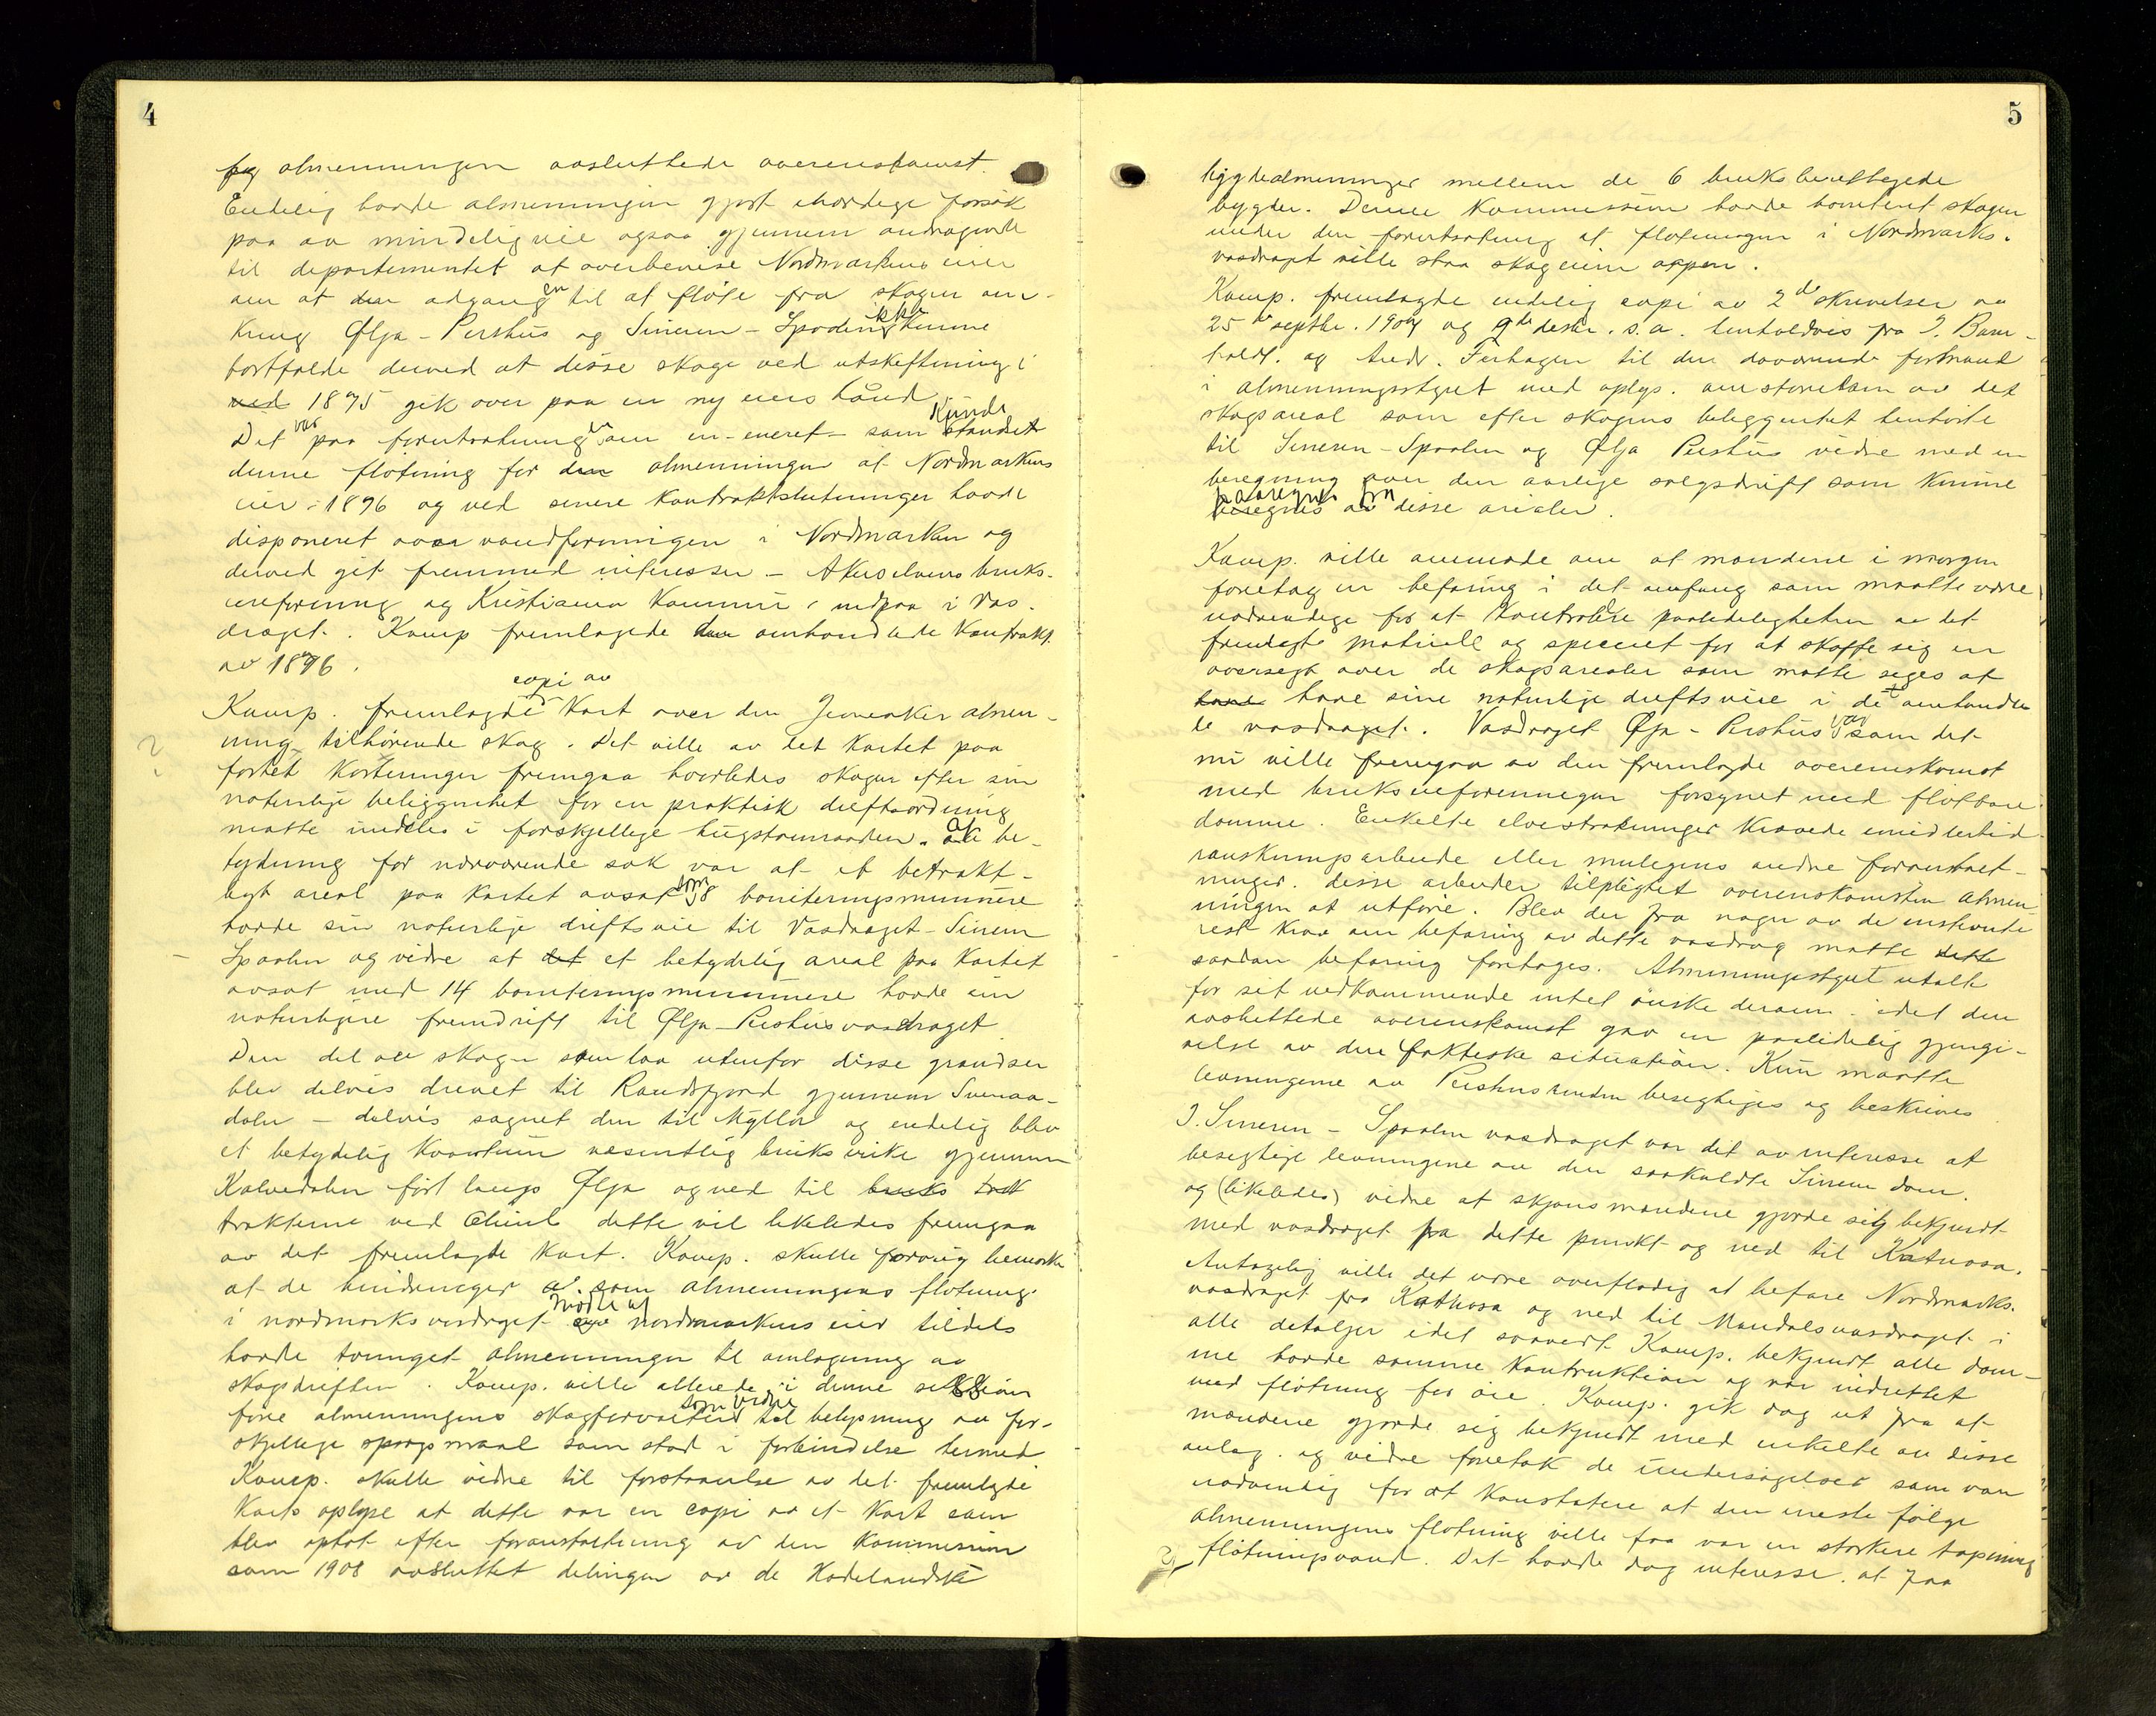 4
almenningen avsluttede overenskomst.
Endelig havde almenningen gjort ihærdige forsøk
paa av mindelig veie ogsaa gjennem andragende
til departementet at overbevise Nordmarkens eier
om at den adgang en til at fløte fra skogen om-
kring Ølja - Pershus og Sinern - Spaalen ikke kunne
bortfalde derved at disse skoge ved utskiftning i
ved 1895 gik over paa en ny eiers hånd
Det var paa forutsætning en om en eneret som kunde
denne fløtning for den almenningen at Nordmarkens
eier i 1896 og ved senere kontraktslutninger havde
disponeret over vandføringen i Nordmarken og
derved git fremmed interesser - Akerselvens bruks-
eierforening og Kristiania Kommune indpas i vas-
draget. Komp fremlagde den omhandlede kontrakt
av 1896.
Komp. fremlagde copi av kart over den Jevnaker almen-
ning tilhørende skog. Det ville av det kartet paa
førte karteringer fremgaa hvorledes skogen efter sin
naturlige beliggenhet for en praktisk driftsordning
maatte inndeles i forskjellige hugstomraader. Av be-
tydning for nærværende sak var at et betrakt-
ligt areal paa kartet avsat som 58 boniteringsnummere
havde sin naturlige driftsveie til Vasdraget - Sinern
- Spaalen og vidre at det et betydelig areal paa kartet
avsat med 14 boniteringsnummere havde sin
naturligste fremdrift til Ølja - Pershusvasdraget
Den del av skogen som laa utenfor disse grændser
blev delvis drevet til Randsfjord gjennem Svenaa-
dalen - delvis sagnet den til Mylla og endelig blev
et betydelig kvantum væsentlig bruksvirke gjennem
Kalvedalen ført langs Ølja og ned til bruks
trakterne ved dette vil likeledes fremgaa
av det fremlagte kart. Komp. skulle forøvrig bemerke
at de hindringer som almenningens fløtning
i nordmarksvasdraget møtte av nordmarkens eier tildels
havde tvunget almenningen til omlægning av
skogsdriften. Komp. ville allerede i denne session
føre almenningens skogforvalter som vidne til belysning av for-
skjellige spørgsmaal som stod i forbindelse hermed
Komp. skulle vidre til forstaaelse av det fremlagte
Karts oplyse at dette var en copi av et kart som
blev optat efter foranstaltning av den Kommission
som 1908 avsluttet delingen av de Hadelandske
5
bygdealmenninger mellem de 6 bruksberettigede
bygder. Denne Kommission havde boniteret skogen
under den forutsætning at fløtningen i Nordmarks-
vasdraget ville staa skogeierne oppen.
Komp. fremlagde endelig copi av 2de skrivelser av
25de septbr. 1907 og 9de desbr. s.a. henholdsvis fra
og Andr. til den daværende formand
i almenningsstyret med oplys. om størrelsen av det
skogsareal som efter skogens beliggenhet henhørte
til Sinern - Spaalen og Ølja Pershus vidre med en
beregning over den aarlige salgsdrift som kunne
paaregnes fra disse arealer.
Komp. ville anmode om at mændene i morgen
foretog en befaring i det omfang som maatte være
nødvendige for at kontrollere paalideligheten av det
fremlagte materiell og specielt for at skaffe sig en
oversigt over de skogsarealer som maatte siges at
have sine naturlige driftsveie i det omhandle
de vasdraget. Vasdraget Ølja - Pershus var som det
nu ville fremgaa av den fremlagde overenskomst
med brukseierforeningen forsynet med fløtbare
damme. Enkelte elvestrækninger krævede imidlertid
ranskningsarbeide eller muligens andre foranstalt-
ninger. disse arbeider tilpligtet overenskomsten almen-
ningen at utføre. Blev der fra nogen av de instevnte
reist krav om befaring av dette vasdrag maatte dette
saadan befaring foretages. Almenningsstyret utalte
for set vedkommende intet ønske derom. idet den
avsluttede overenskomst gav en paalidelig gjengi-
velse av den faktiske situation. Kun maatte
levningerne av Pershusrenden besegtiges og beskrives
I. Sinern - Spaalen vasdraget var det av interesse at
besegtige levningene av den saakaldte Sinern dam.
og (likeledes) vidre at skjønsmændene gjorde seg bekjendt
med vasdraget fra dette punkt og ned til Katnosa.
Antagelig ville det være overflødig at befare Nordmarks-
vasdraget fra Kathosa og ned til Maridalsvasdraget i
alle detaljer idet saavidt Komp. bekjendt alle dam-
me havde samme kontruktion og var indrettet
med fløtning for øie. Komp. gik dog ut fra at
mændene gjorde sig bekjendt med enkelte av disse
anlæg. og vidre foretok de undersøgelser som var
nødvendig for at konstatere at den eneste følge
almenningens fløtning ville faa var en sterkere tapning
fløtningsvand. Det havde dog interesse at faa